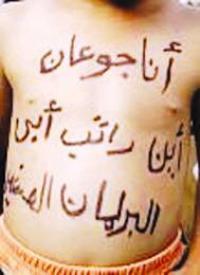 أنا جوعان
أين راتب أبي
البرلمان